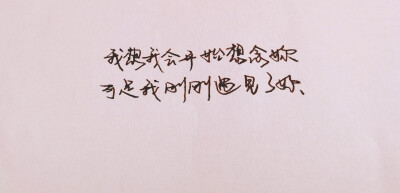 我想我会开始想念你
可是我刚刚遇见了你、